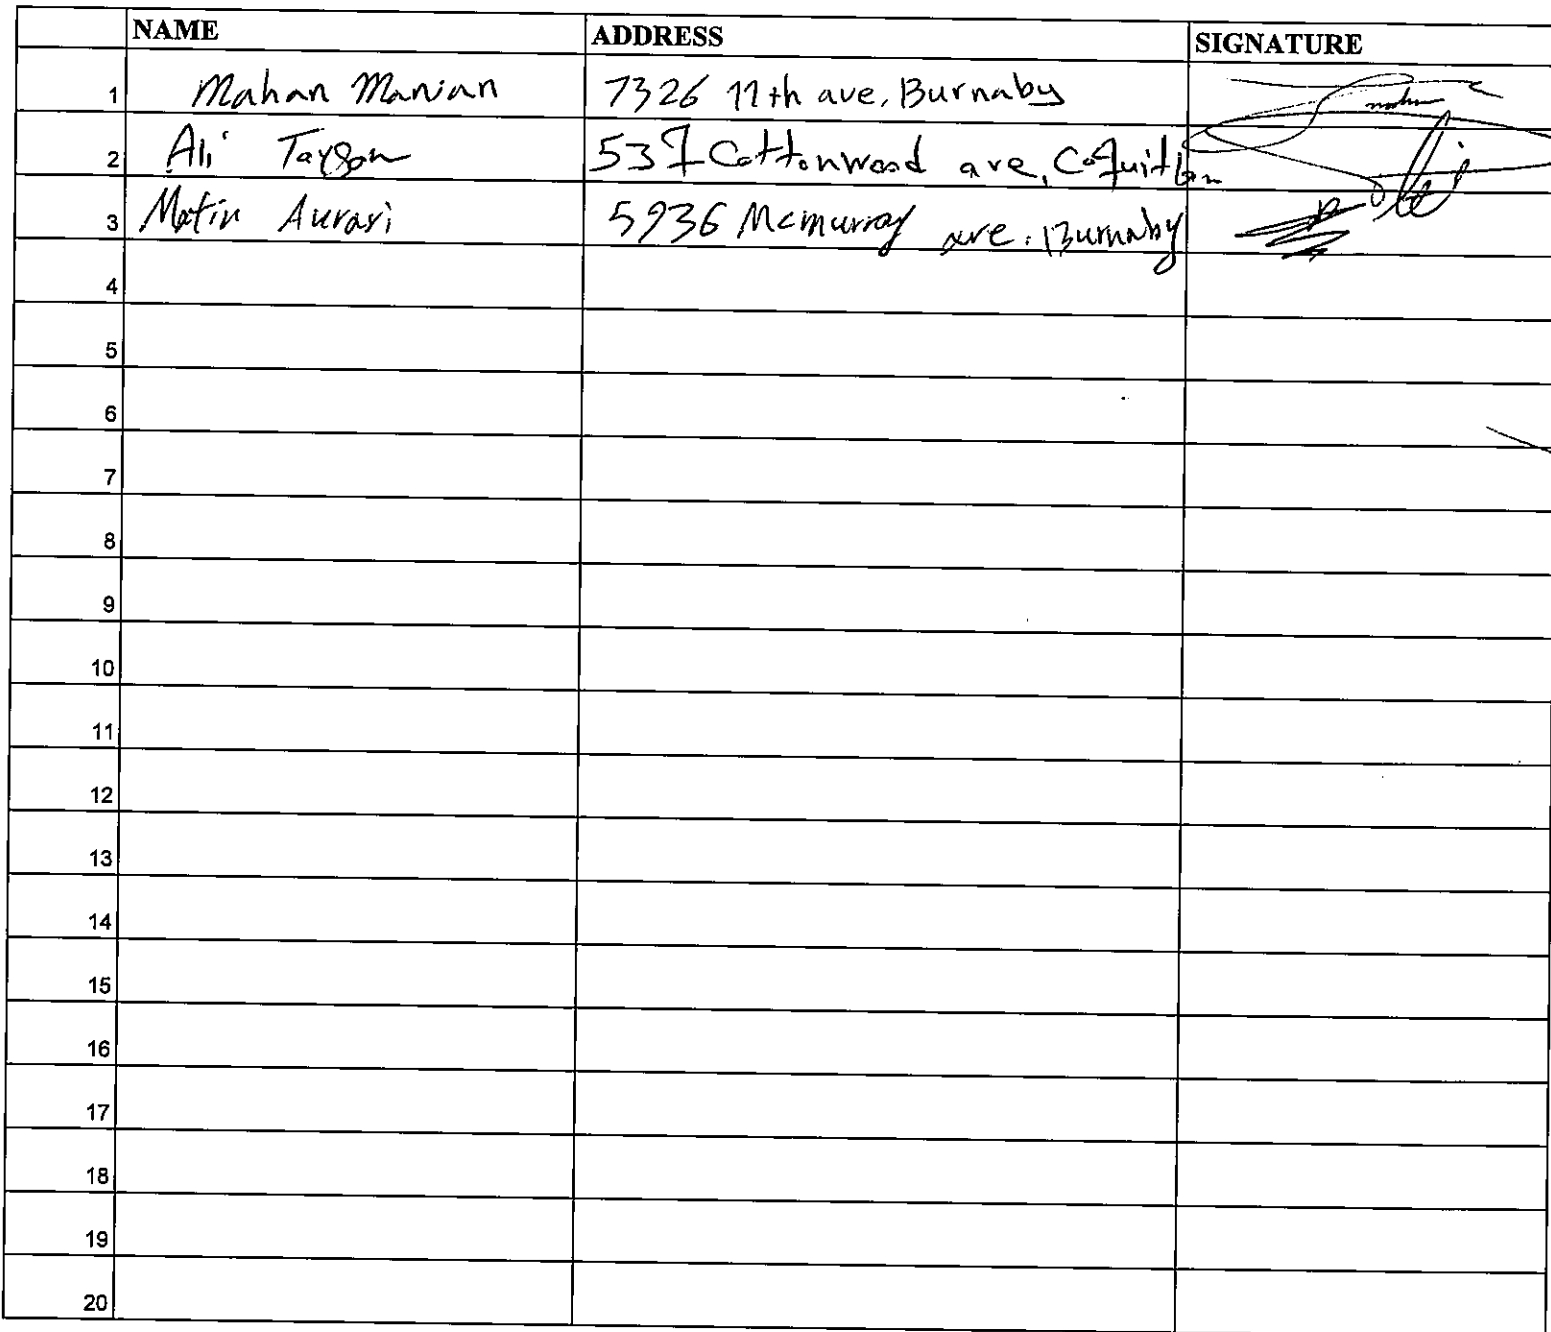 NAME ADDRESS SIGNATURE
1 Mahan Manian 7326 11th ave, Burnaby
2 Ali 537 Cottonwood ave, Coquitlam
3 Matin Aurari 5936 Mcmurray ave. Burnaby
4
5
6
7
8
9
10
11
12
13
14
15
16
17
18
19
20